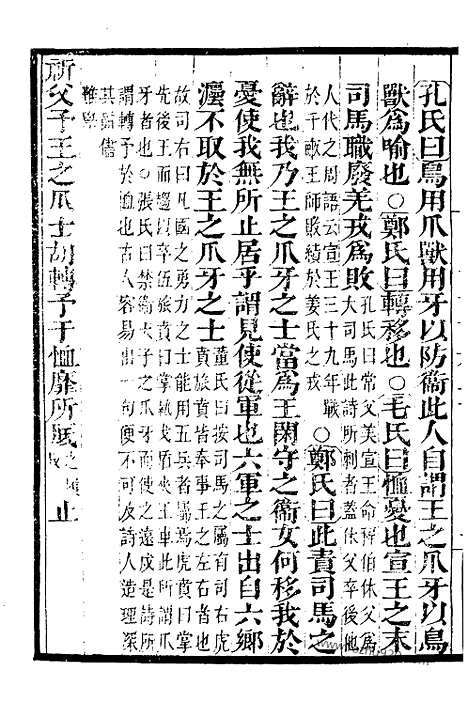 孔氏曰鳥用爪獸用牙以防衞此人自謂王之爪牙以鳥
獸爲喻也○鄭氏曰轉移也○毛氏曰恤憂也宣王之末
司馬職廢羌戎爲敗
孔氏曰常父美宣王命程伯休父爲
大司馬此詩所刺者蓋休父卒後他
人代之周語云宣王三十九年戰
於千畝王師敗績於姜氏之戎
○鄭氏曰此責司馬之
辭也我乃王之爪牙之士當爲王閑守之衞女何移我於
憂使我無所止居乎謂見使從軍也六軍之士出自六鄉
灋不取於王之爪牙之士
董氏曰按司馬之屬有司右虎
賁旅賁皆奉事王之左右者也
故司右曰凡國之勇力之士能用五兵者屬焉虎賁曰掌
先後王而趨以卒伍旅賁曰掌執戈盾夾王車此所謂爪
牙者也○張氏曰禁衞夫子之爪牙而使之遠戍是詩所
謂轉予於恤也古人容易出一句便不可及詩人造理深
其語儘
難學
祈父予王之爪士胡轉予于恤靡所厎
之履
止